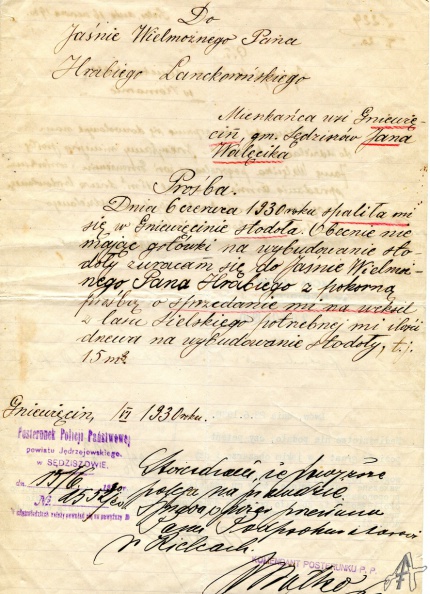 Do
Jaśnie Wielmożnego Pana
Hrabiego Lanckorońskiego
Mieszkańca wsi Gniewię-
cin, gm. Sędziszów Jana
Walęcika
Prośba.
Dnia 6 czerwca 1930 roku spaliła mi
się w Gniewięcinie stodoła. Obecnie nie
mając gotówki na wybudowanie sto-
doły zwracam się do Jaśnie Wielmoż-
nego Pana Hrabiego z pokorną
prośbą o sprzedanie mi na weksel
z lasu Sielskiego potrzebnej mi ilości
drzewa na wybudowanie stodoły, t.j.
15 m³
Gniewięcin, VI 1930 roku.
Posterunek Policji Państwowej
powiatu Jędrzejowskiego.
w SĘDZISZOWIE.
dn. 15/6 1930
№
Stwierdzam, że powyższe
polega na prawdzie.
w Kielcach
KOMENDANT POSTERUNKU P. P.